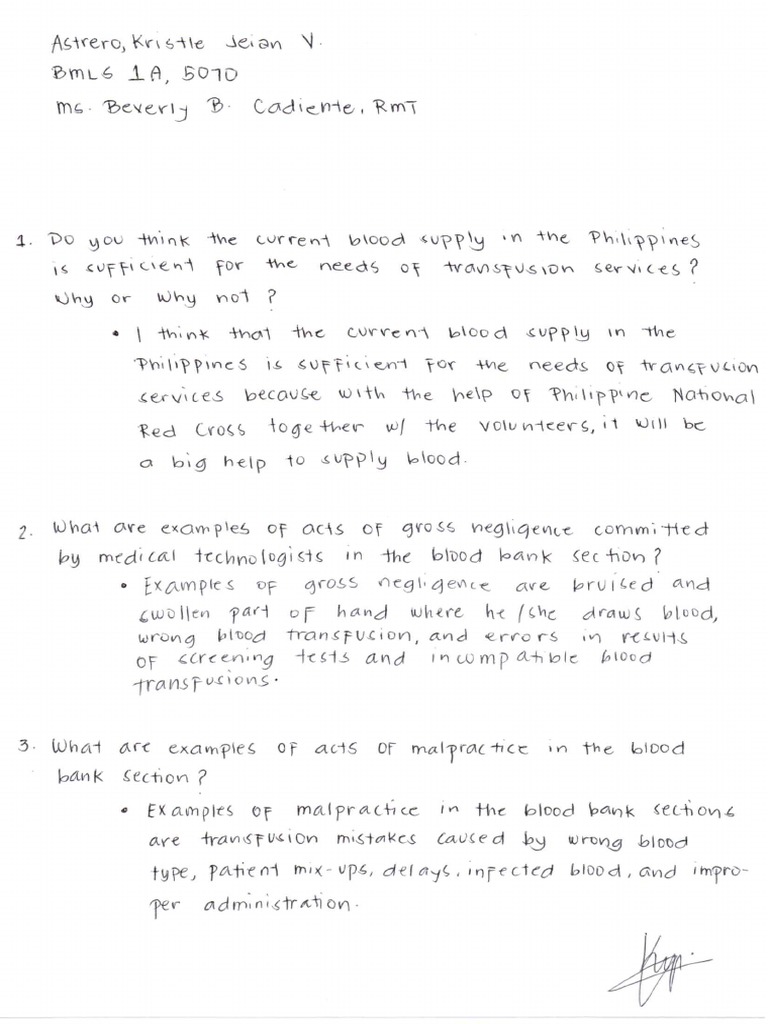 Astrero, Kristle Jeian V.
BMLS 1A, 5070
Ms. Beverly B. Cadiente, RMT
1. Do you think the current blood supply in the Philippines
is sufficient for the needs of transfusion services?
Why or why not?
• I think that the current blood supply in the
Philippines is sufficient for the needs of transfusion
services because with the help of Philippine National
Red Cross together w/ the volunteers, it will be
a big help to supply blood.
2. What are examples of acts of gross negligence committed
by medical technologists in the blood bank section?
• Examples of gross negligence are bruised and
swollen part of hand where he/she draws blood,
wrong blood transfusion, and errors in results
of screening tests and incompatible blood
transfusions.
3. What are examples of acts of malpractice in the blood
bank section?
• Examples of malpractice in the blood bank sections
are transfusion mistakes caused by wrong blood
type, patient mix-ups, delays, infected blood, and impro-
per administration.